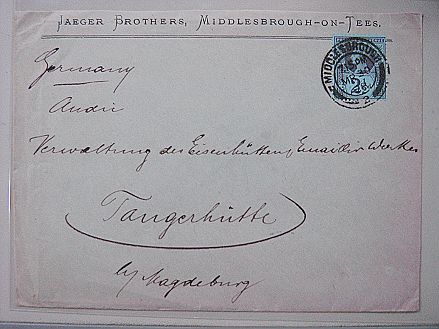 JAEGER BROTHERS, MIDDLESBROUGH-ON-TEES.
MIDDLESBROUGH
MR
2
Germany
An die
Verwaltung des Eisenhütten, Emaillir Werkes
Tangerhütte
by Magdeburg